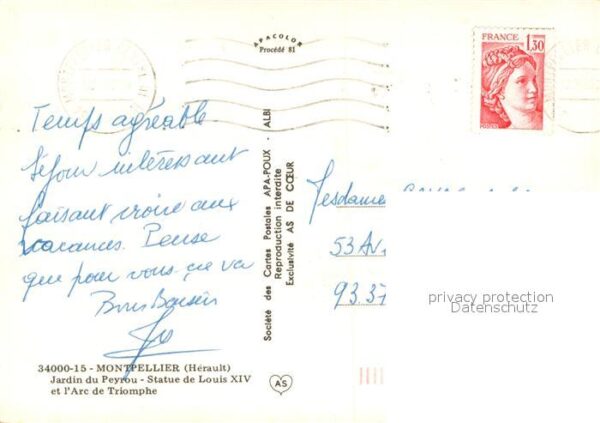 APACOLOR
Procédé 81
FRANCE
1,30
MONTPELLIER
Temps agréable
Séjour intéressant
faisant croire aux
vacances. Pense
que pour vous, ça va
Bons Baisers
Mesdames
53 Av
93.37
privacy protection
Datenschutz
Société des Cartes Postales APA-POUX - ALBI
Reproduction interdite
Exclusivité AS DE CŒUR
34000-15 - MONTPELLIER (Hérault)
Jardin du Peyrou - Statue de Louis XIV
et l'Arc de Triomphe
AS